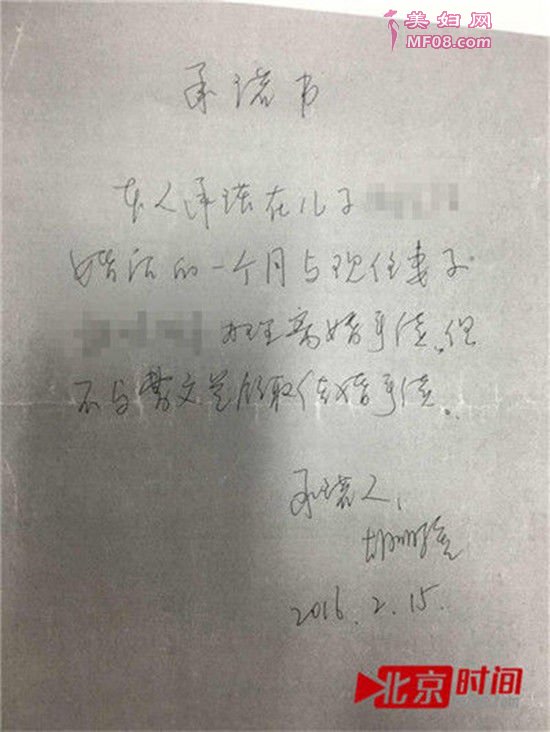 美妇网
MF08.com
承诺书
本人承诺在儿子
婚后的一个月与现任妻子
办理离婚手续,但
不与曹文兰领取结婚手续.
承诺人,
2016.2.15.
北京时间